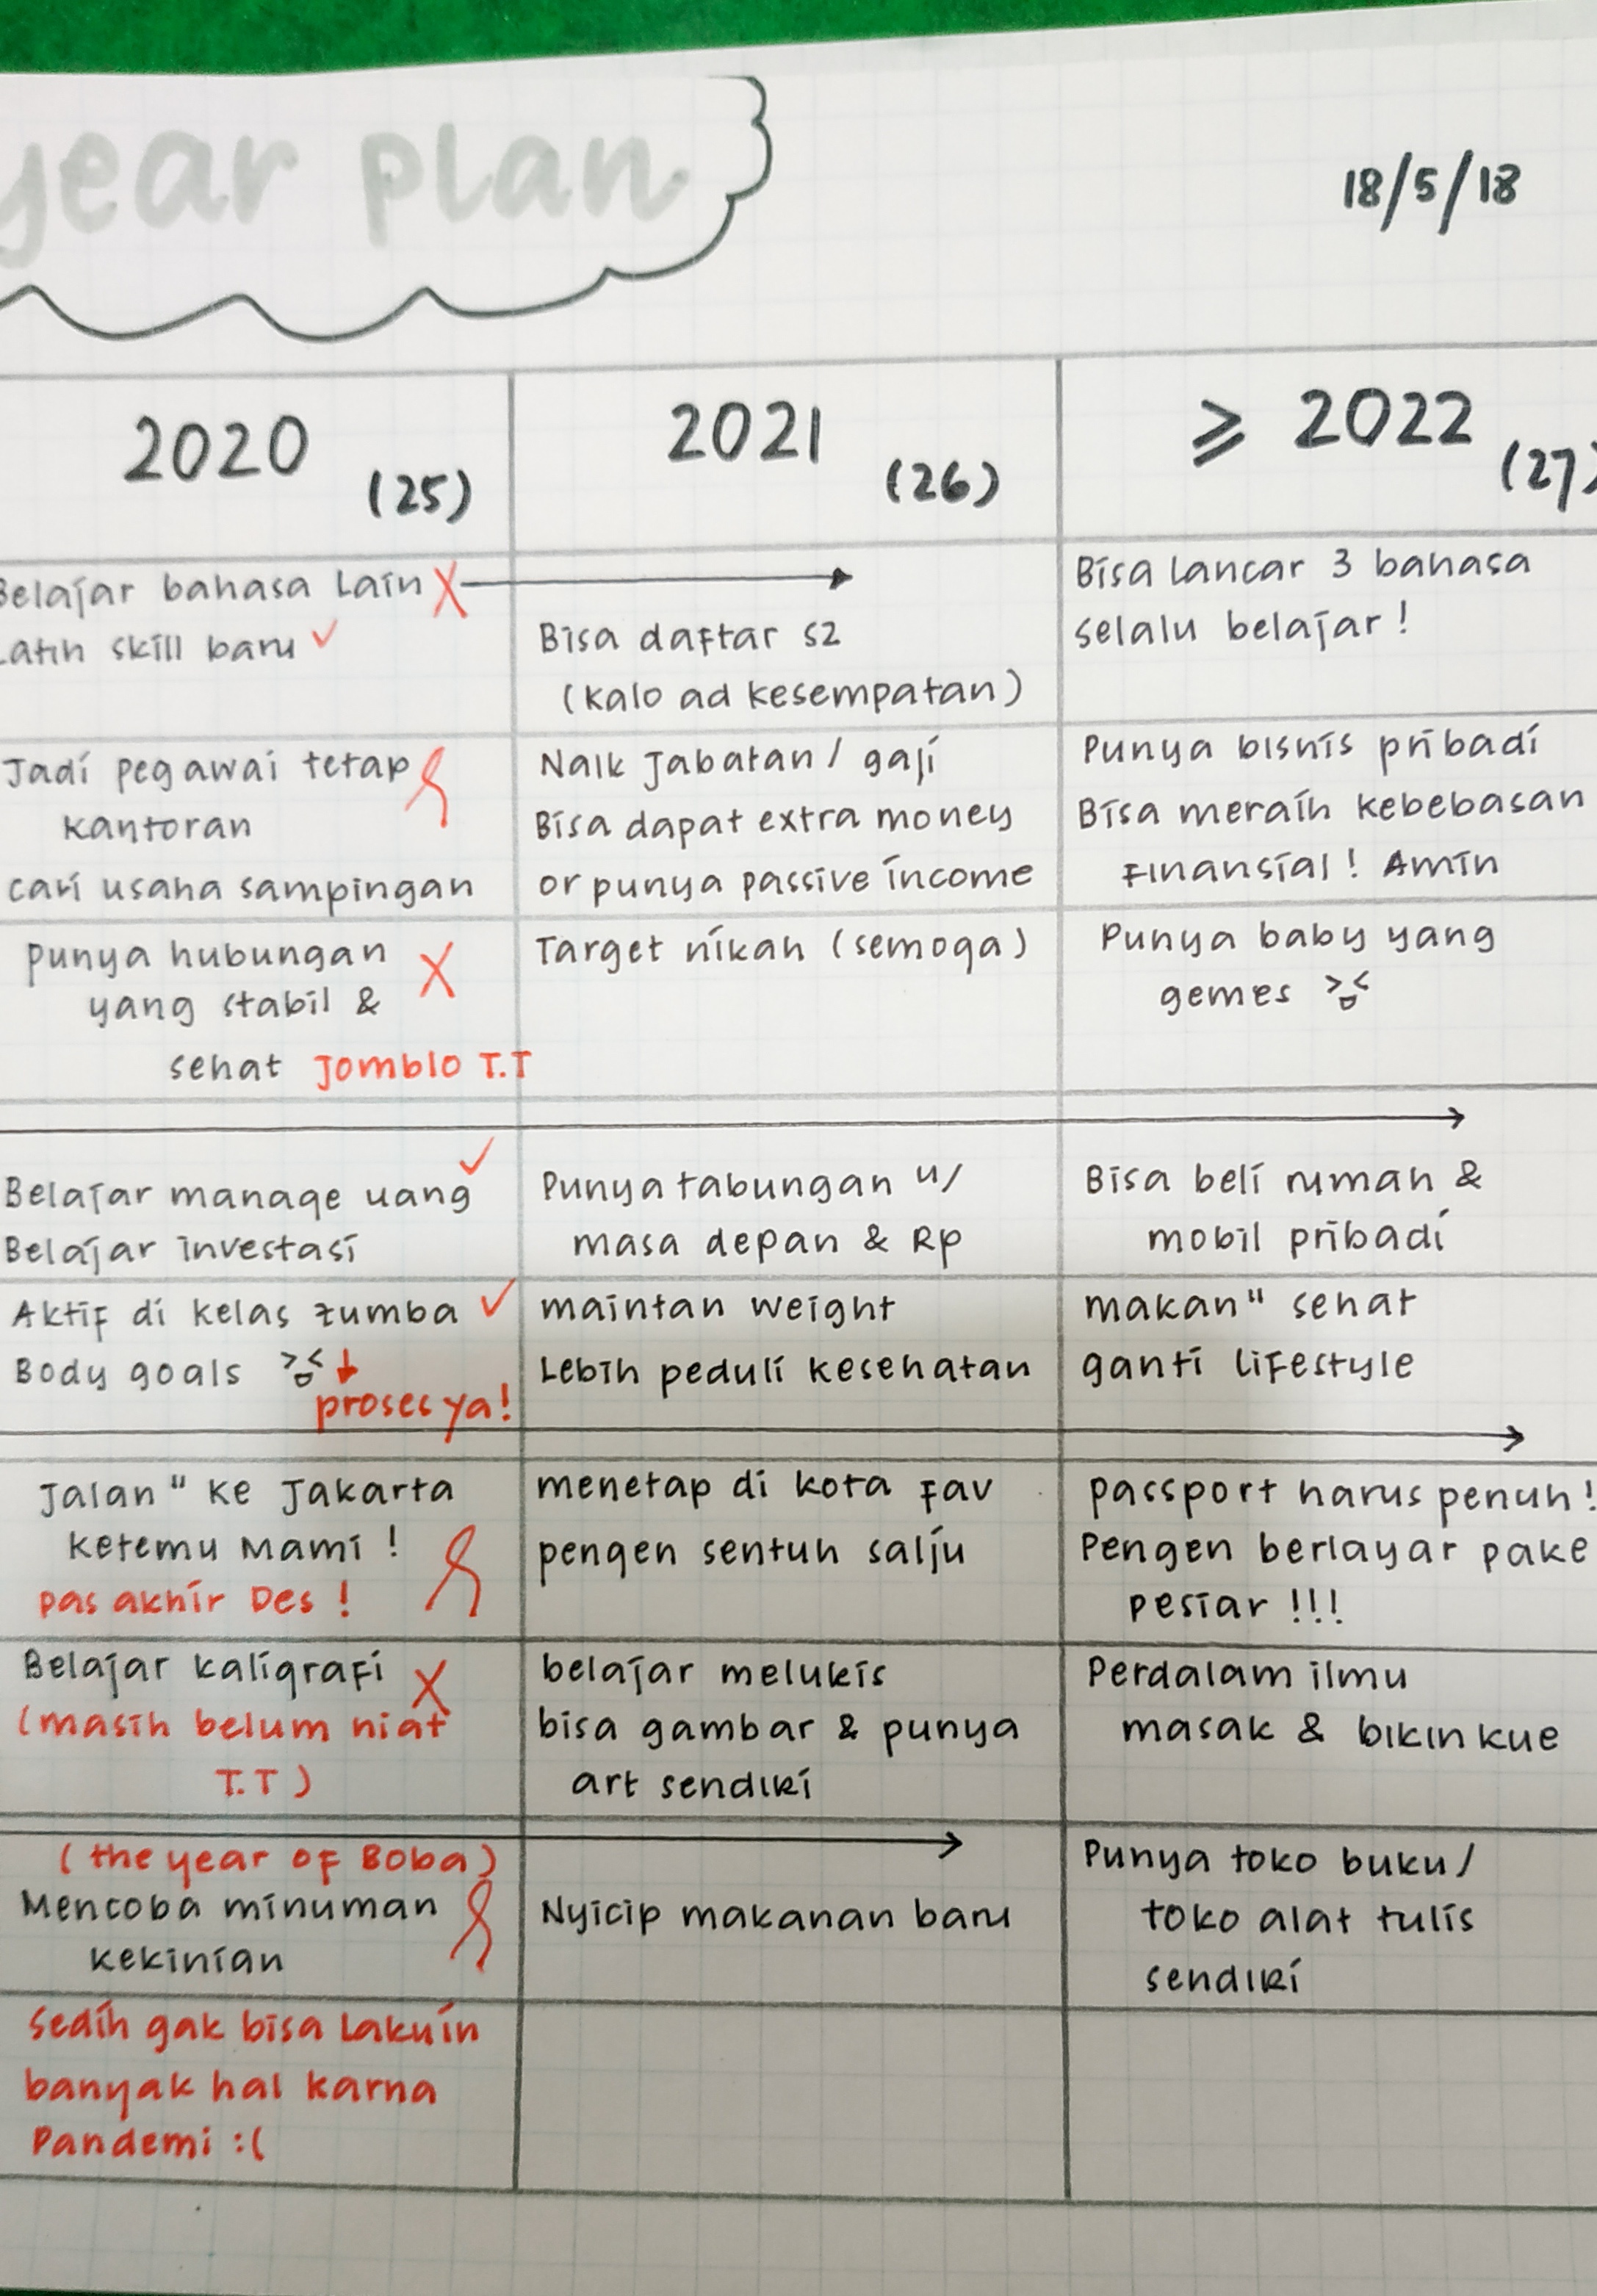 year plan
18/5/18
2020 (25)
2021 (26)
≥ 2022 (27)
Belajar bahasa Lain X
Latih skill baru ✓
Bisa daftar S2
(kalo ad kesempatan)
Bisa Lancar 3 bahasa
selalu belajar!
Jadi pegawai tetap
kantoran
cari usaha sampingan
Naik Jabatan / gaji
Bisa dapat extra money
or punya passive income
Punya bisnis pribadi
Bisa meraih kebebasan
Finansial! Amin
punya hubungan X
yang stabil &
sehat Jomblo T.T
Target nikah (semoga)
Punya baby yang
gemes
Belajar manage uang ✓
Belajar investasi
Punya tabungan u/
masa depan & Rp
Bisa beli rumah &
mobil pribadi
Aktif di kelas zumba ✓
Body goals
proses ya!
maintan weight
Lebih peduli kesehatan
makan" sehat
ganti lifestyle
Jalan" ke Jakarta
ketemu Mami!
pas akhir Des!
menetap di kota fav
pengen sentuh salju
passport harus penuh!
Pengen berlayar pake
pesiar!!!
Belajar kaligrafi X
(masih belum niat
T.T)
belajar melukis
bisa gambar & punya
art sendiri
Perdalam ilmu
masak & bikin kue
(the year of Boba)
Mencoba minuman
kekinian
Nyicip makanan baru
Punya toko buku/
toko alat tulis
sendiri
Sedih gak bisa Lakuin
banyak hal karna
Pandemi :(